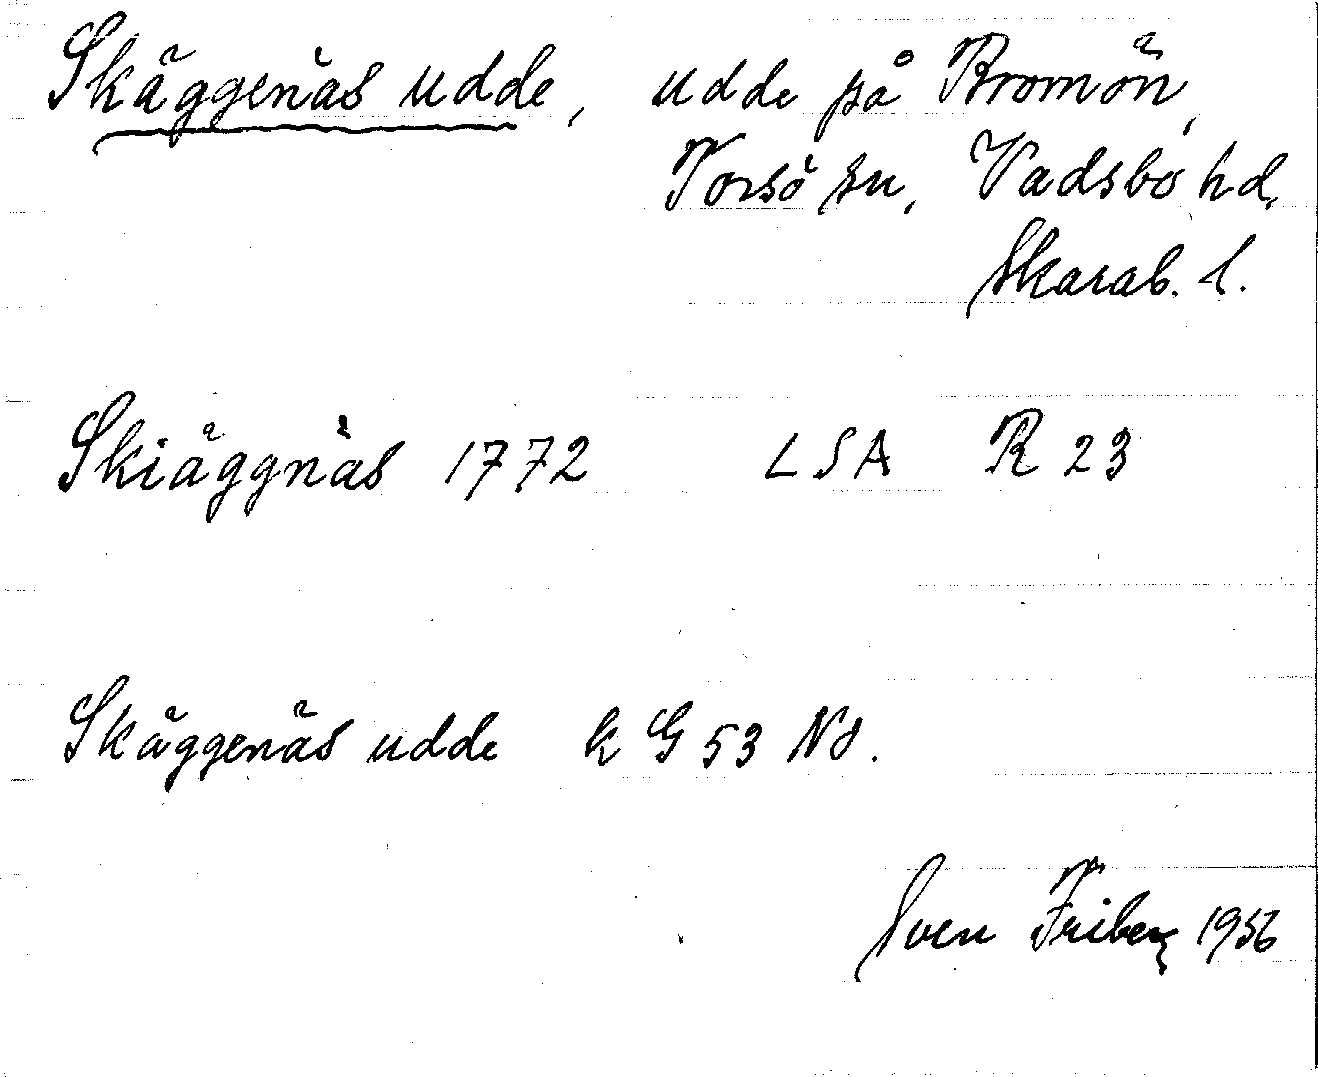 Skäggenäs udde, udde på Bromön,
Torsö sn, Vadsbo hd,
Skarab. l.
Skiäggnäs 1772 LSA R 23
Skäggenäs udde k G 53 NO.
Sven Friberg 1956